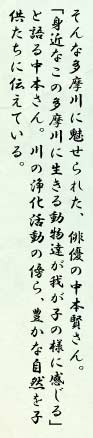 そんな多摩川に魅せられた、俳優の中本賢さん。
「身近なこの多摩川に生きる動物達が我が子の様に感じる」
と語る中本さん。川の浄化活動の傍ら、豊かな自然を子
供たちに伝えている。